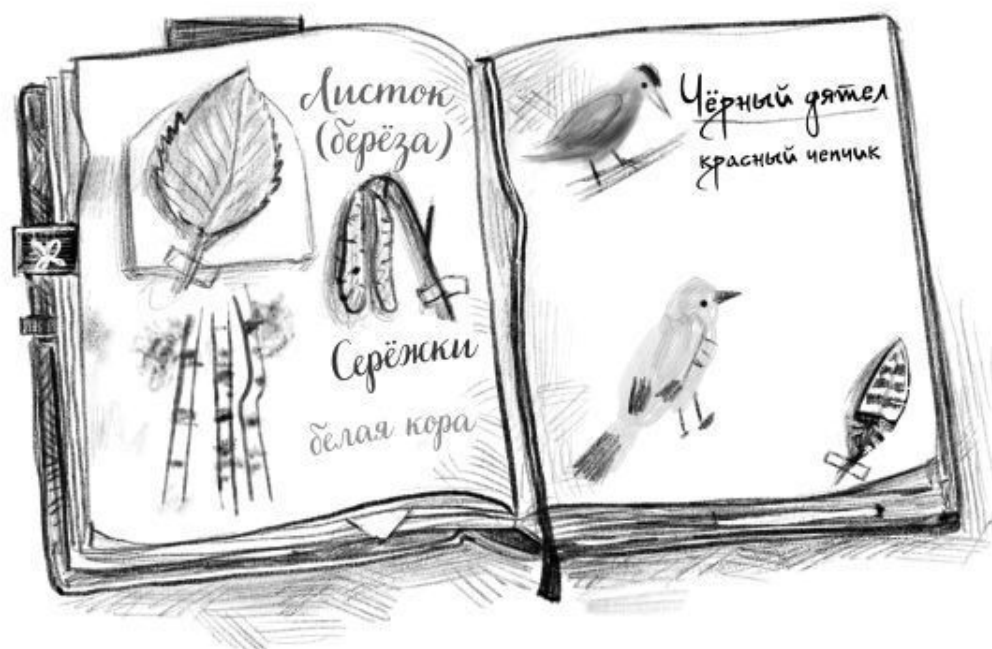 Листок
(берёза)
Серёжки
белая кора
Чёрный дятел
красный чепчик